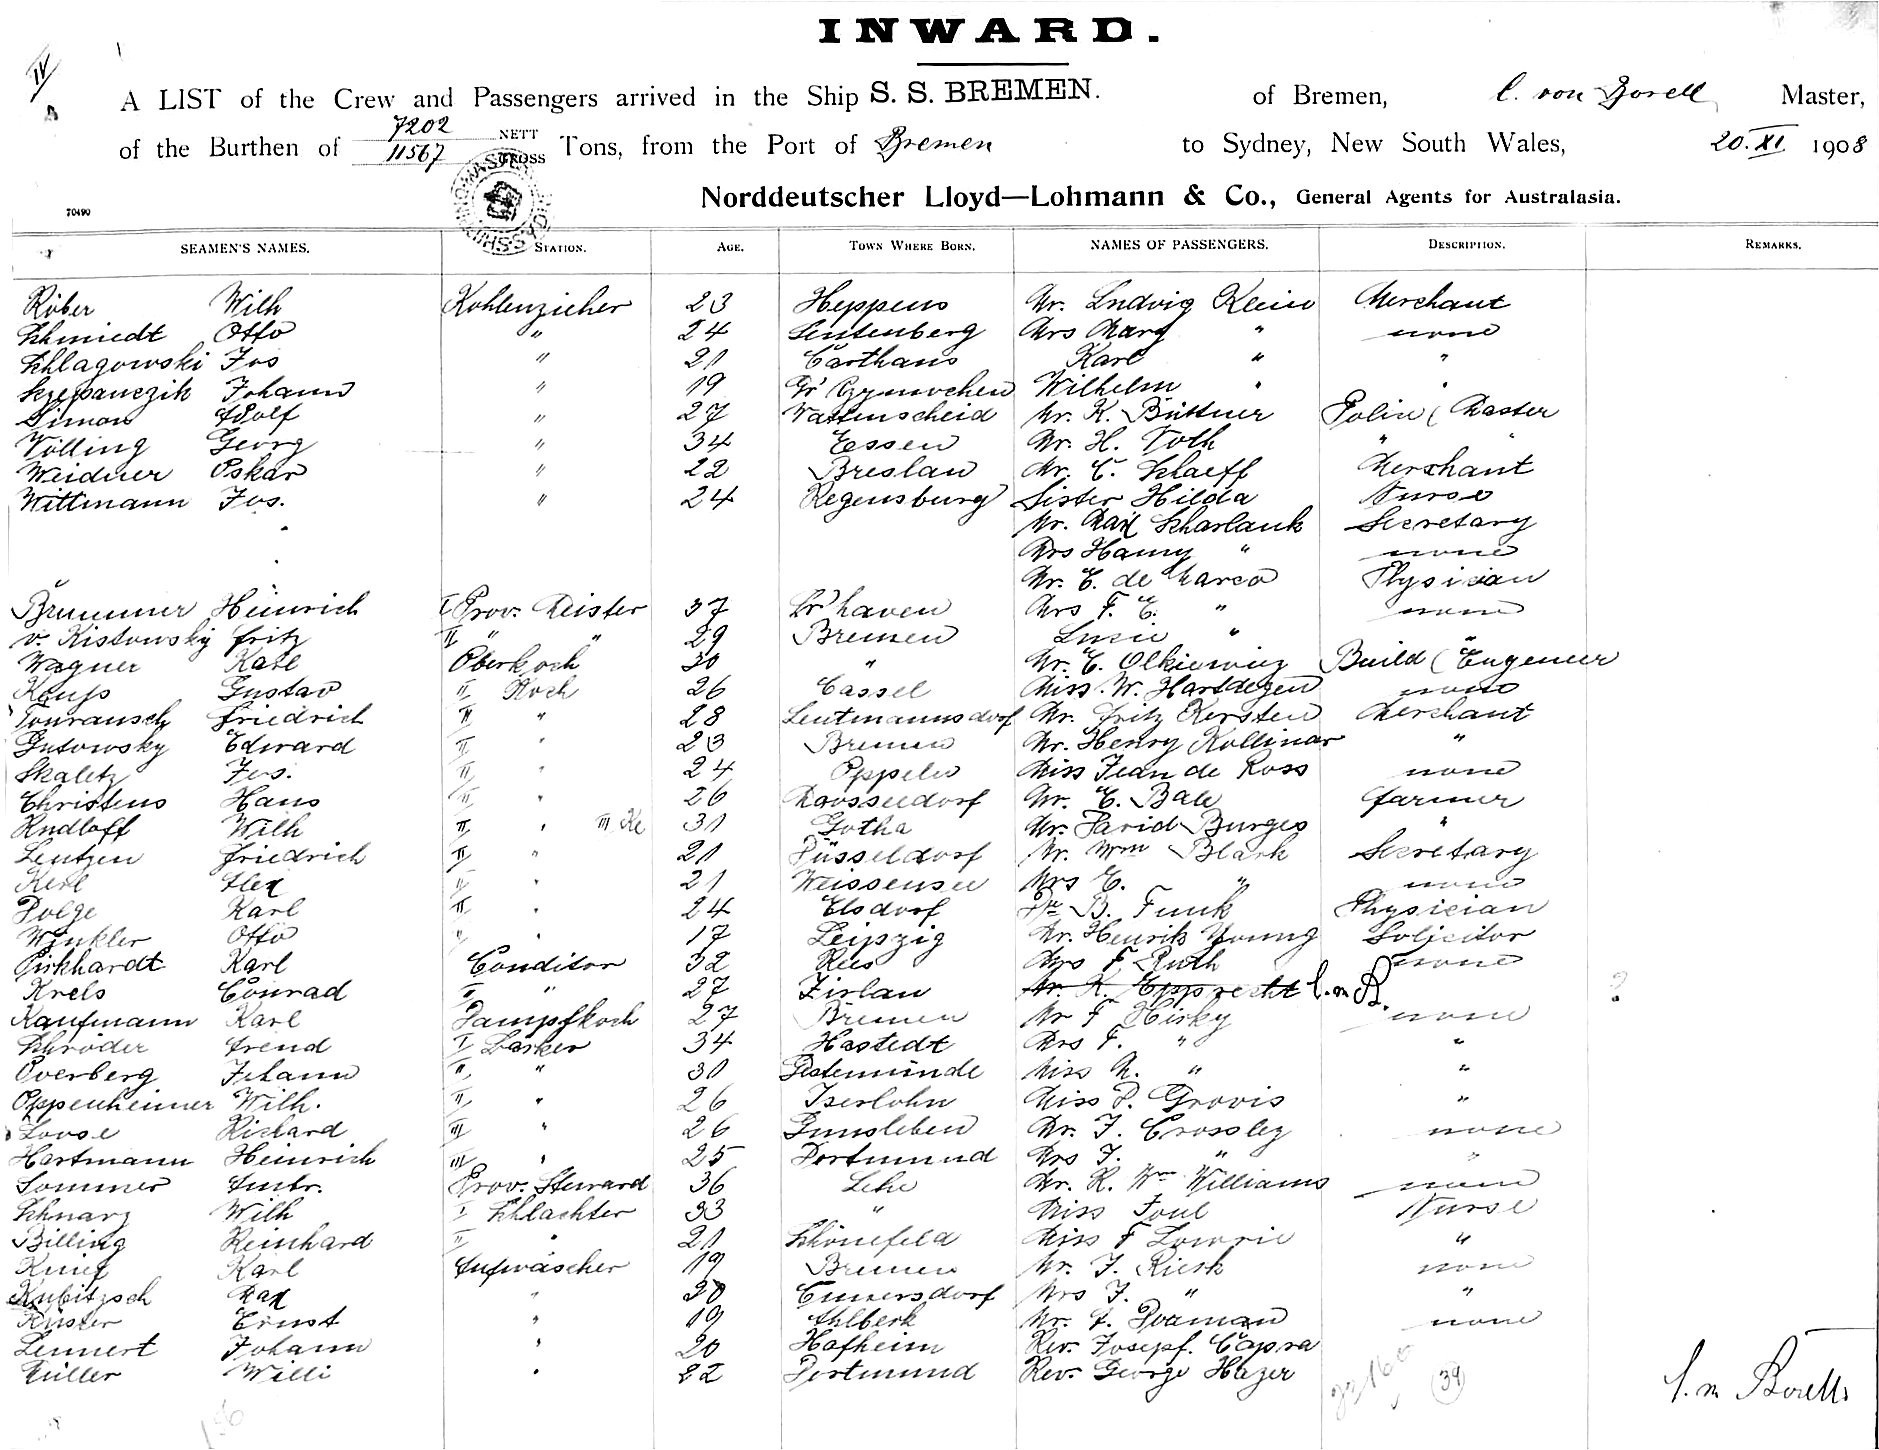 INWARD.
A LIST of the Crew and Passengers arrived in the Ship S. S. BREMEN. of Bremen, C. von Borell Master,
of the Burthen of 7202 NETT 11567 GROSS Tons, from the Port of Bremen to Sydney, New South Wales, 20. XI. 1908
Norddeutscher Lloyd—Lohmann & Co., General Agents for Australasia.
70490
SEAMEN'S NAMES. STATION. AGE. TOWN WHERE BORN. NAMES OF PASSENGERS. DESCRIPTION. REMARKS.
Röber Wilh Kohlenzieher 23 Heppens Mr. Ludwig Klein Merchant
Schmiedt Otto " 24 Senftenberg Mrs Marg " none
Schlagowski Jos " 21 Carthaus Karl " "
Szepanczik Johann " 19 Gr Wilhelm " "
Simon Adolf " 27 Wattenscheid Mr. K. Büttner Master
Völling Georg " 34 Essen Mr. H. Voth " "
Weidner Oskar " 22 Breslau Mr. C. Schaeff Merchant
Wittmann Jos. " 24 Regensburg Sister Hilda Nurse
Mr. Max Scharlank Secretary
Mrs Hanny " none
Mr. E. de Marco Physician
Brummer Heinrich I Prov. Meister 37 Br'haven Mrs F. E. " none
v. Kistowsky Fritz II " " 29 Bremen Lucie " "
Wagner Karl Oberkoch 30 " Mr. E. Olkiewicz Build ( Engeneer
Keuss Gustav II Koch 26 Cassel Miss. W. Hartdegen none
Tourausch Friedrich II " 28 Leutmannsdorf Mr. Fritz Kersten Merchant
Gutowsky Edward II " 23 Bremen Mr. Henry Kollinar "
Skaletz Jos. II " 24 Oppeln Miss Jean de Ross none
Christens Hans II " 26 Mr. E. Bale farmer
Rudloff Wilh II " III Ke 31 Gotha Mr. Farid Burges "
Lentzen Friedrich II " 21 Düsseldorf Mr. Wm Black Secretary
Kerl Alex II " 21 Weissensee Mrs E. " none
Dolge Karl II " 24 Elsdorf Dr B. Funk Physician
Winkler Otto " " 17 Leipzig Mr. Henrik Young Solicitor
Pirkhardt Karl Conditor 32 Rees Mrs F. Ruth none
Krels Conrad II " 27 Zirlau Mr. K. Epprecht C. v. B. ?
Kaufmann Karl Dampfkoch 27 Bremen Mr F Hirky none
Schröder Frend I Bäcker 34 Hastedt Mrs F. " "
Overberg Johann II " 31 Geestemünde Miss M. " "
Oppenheimer Wilh. II " 26 Iserlohn Miss P. Grovis "
Loose Richard III " 26 Gunsleben Mr. J. Crossley none
Hartmann Heinrich III " 25 Dortmund Mrs J. " "
Sommer Ambr. Prov. Steward 36 Lehe Mr. R. Wm Williams none
Schnarz Wilh I Schlachter 33 " Miss Foul Nurse
Billing Reinhard II " 21 Schönefeld Miss F Lowrie "
Karl Aufwäscher 19 Bremen Mr. J. Riesk none
Kubitzsch Max " 20 Cunersdorf Mrs J. " "
Küster Ernst " 19 Ahlbeck Mr. F. none
Lennert Johann " 20 Hofheim Rev. Josepf. Capra
Müller Willi " 22 Dortmund Rev. George Hazer
39
C. v. Borell.